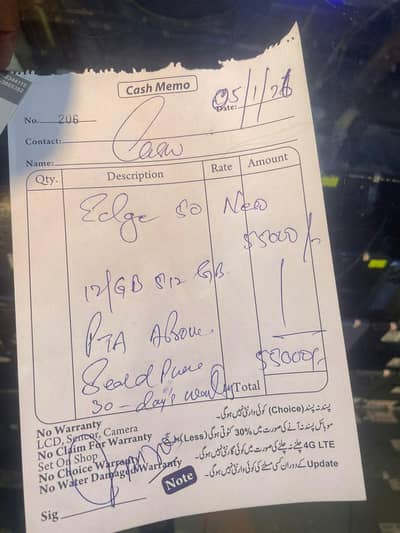 Cash Memo
No. 206
Date: 05/1/26
Contact:
Name: Cash
Qty. Description Rate Amount
Edge 50 Neo
55000/-
12/GB 512 GB
PTA
Seald Phone
30-day's
55000/-
Total
No Warranty
LCD, Sencor, Camera
No Claim For Warranty
Set On Shop
No Choice Warranty
No Water Damaged Warranty
پسند نہ پسند (Choice) کوئی وارنٹی نہیں ہوگی۔
موبائل پسند نہ آنے کی صورت میں 30% کٹوتی ہوگی (Less)
4G LTE چلنے نہ چلنے کی صورت میں کوئی گارنٹی نہیں ہوگی۔
Update کے دوران کسی مسئلے کی کوئی گارنٹی نہیں ہوگی۔
Note
Sig